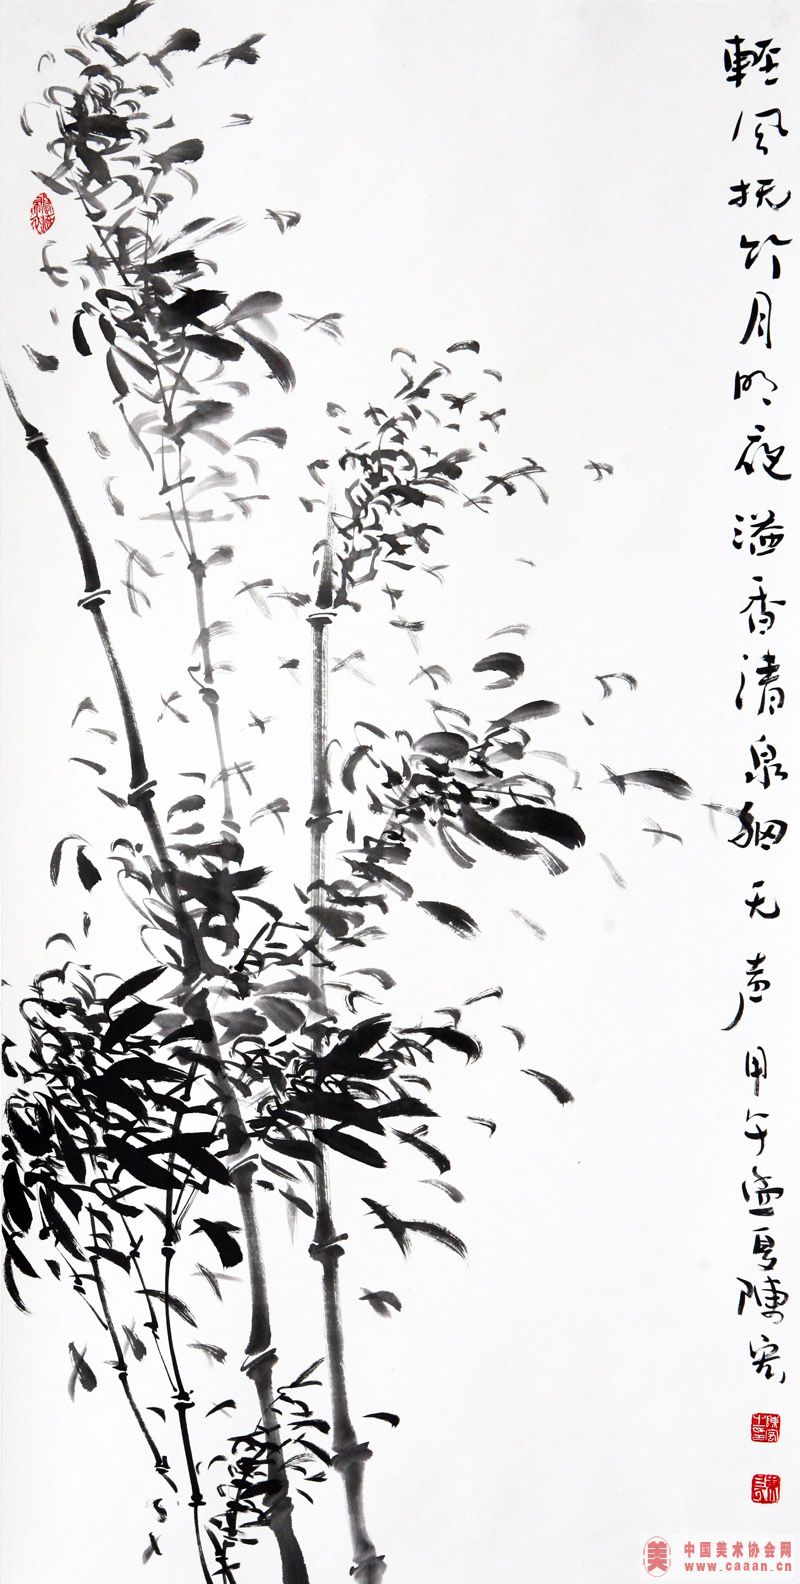 輕风抚竹月明夜溢香清泉细无声甲午孟夏陳宏
中国美术协会网
www.caaan.cn